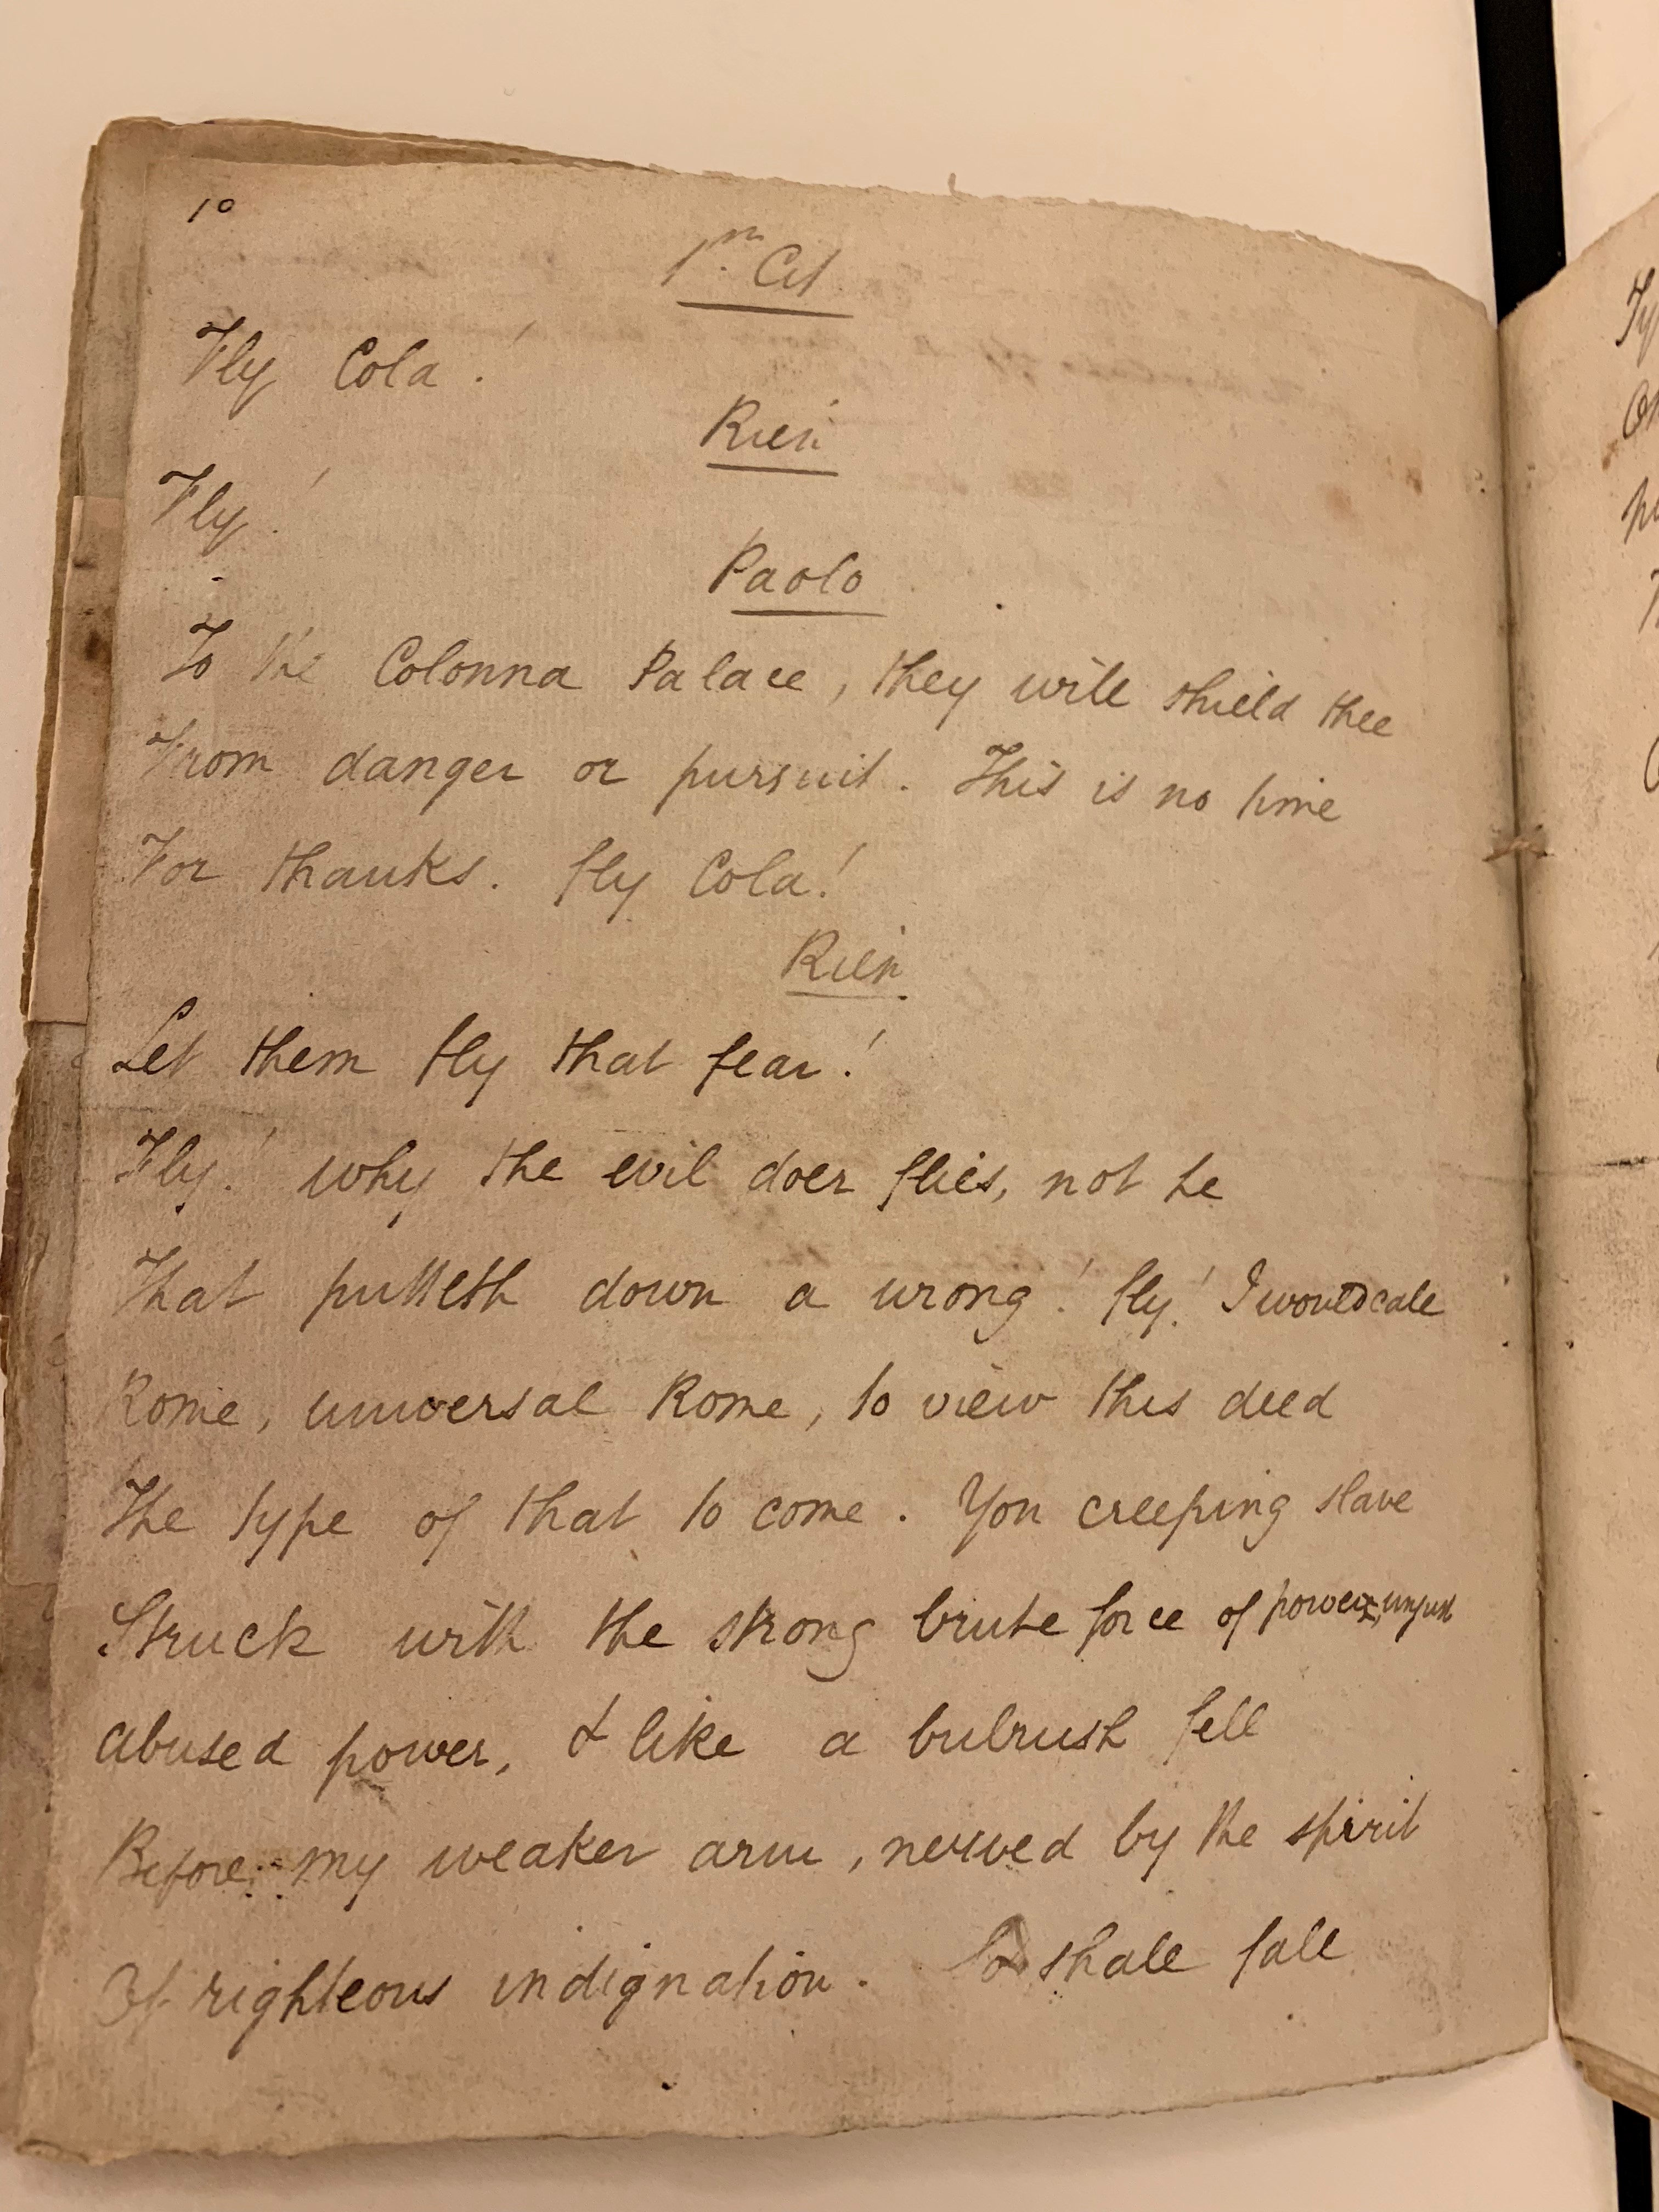 10
1st. Cit
Fly Cola!
Rien
Fly!
Paolo
To the Colonna Palace, they will shield thee
From danger or pursuit. This is no time
For thanks. fly Cola!
Rien
Let them fly that fear!
Fly! why the evil doer flies, not he
That pulleth down a wrong! fly! I would call
Rome, universal Rome, to view this deed
The type of that to come. Yon creeping slave
Struck with the strong brute force of power, unjust
abused power, & like a bulrush fell
Before my weaker arm, nerved by the spirit
Of righteous indignation. So shall fall